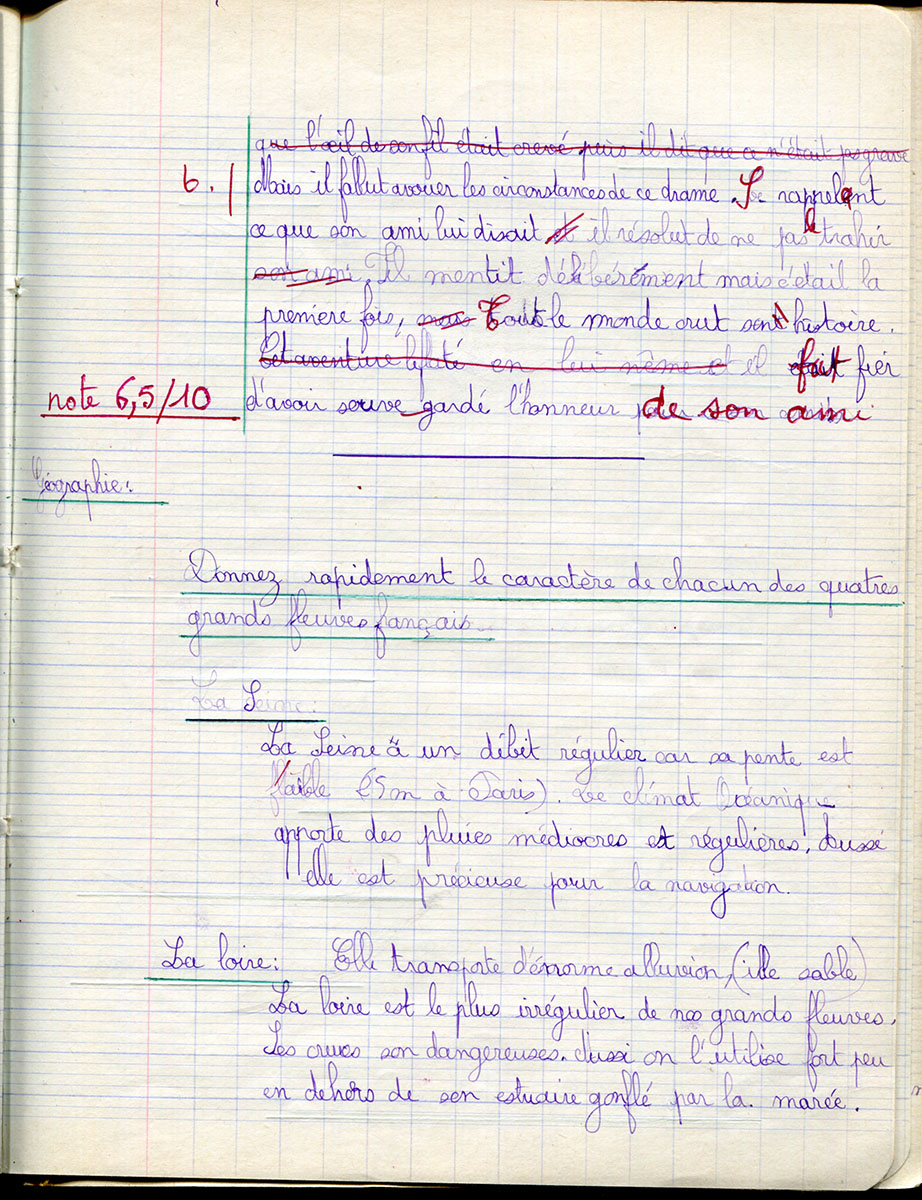 que l'œil de son fil était crevé puis il dit que ce n'était pas grave
6. Mais il fallut avouer les circonstances de ce drame. Se rappelant
ce que son ami lui disait et il résolut de ne pas le trahir
son ami. Il mentit délibérément mais c'était la
première fois, mais Tout le monde crut son histoire.
Cet aventure en lui même et il fut fier
note 6,5/10 d'avoir sauve gardé l'honneur de son ami
Géographie:
Donnez rapidement le caractère de chacun des quatres
grands fleuves français.
La Seine:
La Seine a un débit régulier car sa pente est
faible (25m à Paris). Le climat Océanique
apporte des pluies médiocres et régulières, Aussi
elle est précieuse pour la navigation.
La loire: Elle transporte d'énorme alluvion, (ille sable)
La loire est le plus irrégulier de nos grands fleuves.
Ses crues son dangereuses. Aussi on l'utilise fort peu
en dehors de son estuaire gonflé par la marée.